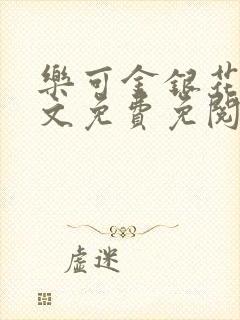 樂可金銀花
文免費免閱
虛迷